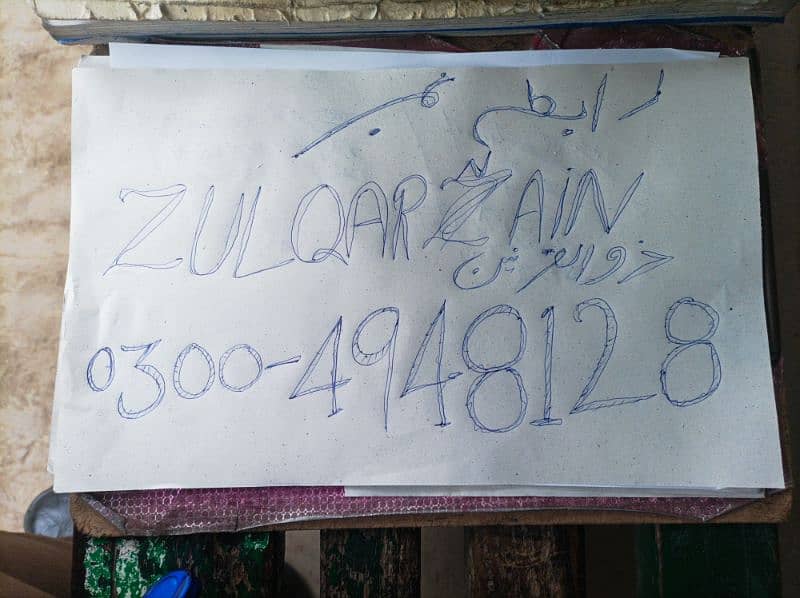 رابطہ نمبر
ZULQARŽAIN
ذوالقرنین
0300-4948128